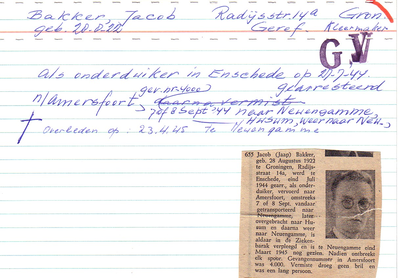 Bakker, Jacob Radijsstr. 14a Gron.
geb. 28-8-22 Geref. Kleermaker
G.V
als onderduiker in Enschede op 21-7-44
gev. nr. 4000 gearresteerd
n/Amersfoort, daarna vermist
7 of 8 Sept. '44 naar Neuengamme,
Husum, weer naar Neu.
Overleden op: 23.4.45 te Neuengamme
655 Jacob (Jaap) Bakker,
geb. 28 Augustus 1922
te Groningen, Radijs-
straat 14a, werd te
Enschede, eind Juli
1944 gearr., als onder-
duiker, vervoerd naar
Amersfoort, omstreeks
7 of 8 Sept. vandaar
getransporteerd naar
Neuengamme, later
overgebracht naar Hu-
sum en daarna weer
naar Neuengamme, is
aldaar in de Zieken-
barak verpleegd en is te Neuengamme eind
Maart 1945 nog gezien. Nadien ontbreekt
elk spoor. Gevangenummer in Amersfoort
was 4.000. Vermiste droeg geen bril en
was een lang persoon.